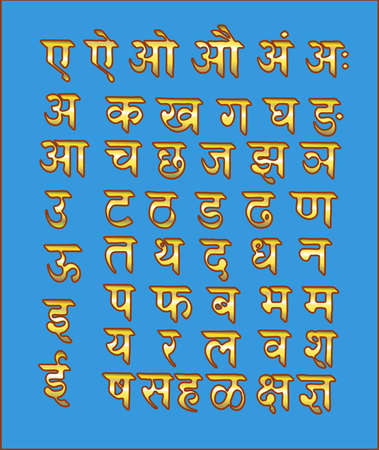 ए ऐ ओ औ अं अः
अ क ख ग घ ङ
आ च छ ज झ ञ
उ ट ठ ड ढ ण
ऊ त थ द ध न
इ प फ ब भ म
य र ल व श
ई ष स ह ळ क्ष ज्ञ